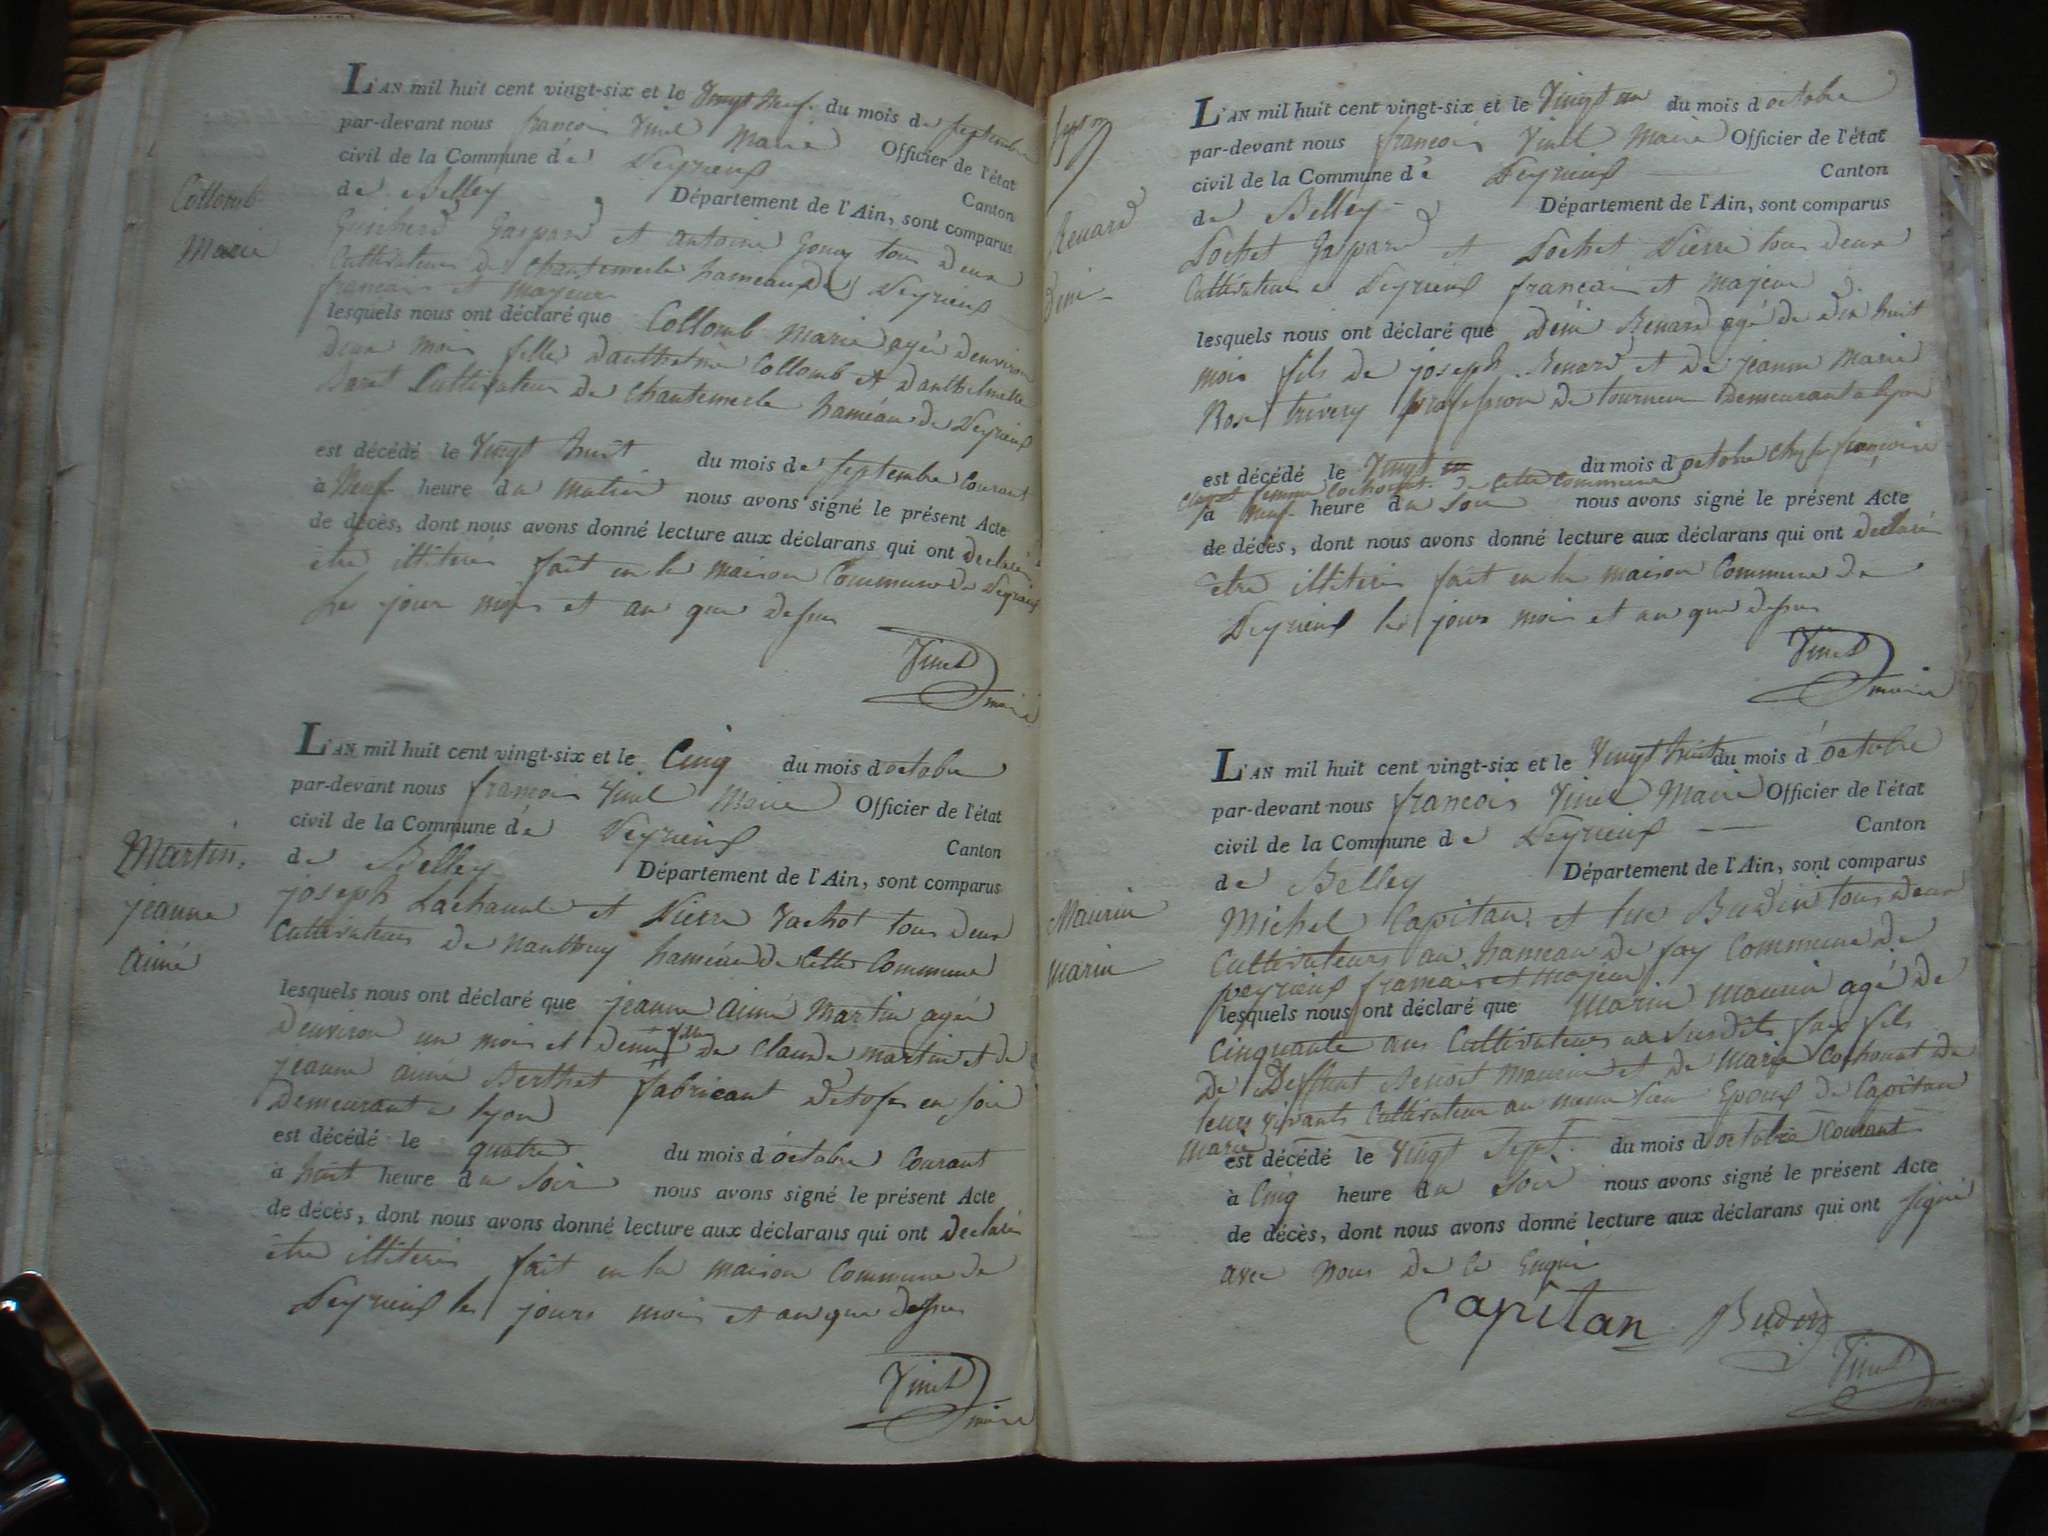 Collomb
Marie
L'AN mil huit cent vingt-six et le Vingt Neuf du mois de Septembre
par-devant nous francois Vinet Maire Officier de l'état
civil de la Commune de Peyrieux Canton
de Belley Département de l'Ain, sont comparus
Gaspard et antoine tous deux
Cultivateurs de chantemerle hameau de Peyrieux
francais et majeurs
lesquels nous ont déclaré que Collomb Marie agée denviron
deux mois fille danthelme Collomb et danthelmette
Cultivateur de chantemerle haméau de Peyrieux
est décédé le Vingt huit du mois de Septembre Courant
à Neuf heure du matin nous avons signé le présent Acte
de décès, dont nous avons donné lecture aux déclarans qui ont declaré
être illiteris fait en la maison Commune de Peyrieux
les jour mois et an que dessus
Vinet
maire
Martin
jeanne
aimé
L'AN mil huit cent vingt-six et le Cinq du mois d octobre
par-devant nous francois Vinet Maire Officier de l'état
civil de la Commune de Peyrieux Canton
de Belley Département de l'Ain, sont comparus
joseph Lachanal et Pierre Vachot tous deux
Cultivateurs de Nanthuy haméau de Cette Commune
lesquels nous ont déclaré que jeanne aimé Martin agée
denviron un mois et demi fille de Claude martin et de
jeanne aimé Berthet fabricant détofes en soie
Demeurant a lyon
est décédé le quatre du mois d'octobre Courant
à huit heure du Soir nous avons signé le présent Acte
de décès, dont nous avons donné lecture aux déclarans qui ont declaré
être illiteris fait en la maison Commune de
Peyrieux les jours mois et an que dessus
Vinet
maire
Renard
Déni
L'AN mil huit cent vingt-six et le Vingt un du mois d octobre
par-devant nous francois Vinet Maire Officier de l'état
civil de la Commune de Peyrieux Canton
de Belley Département de l'Ain, sont comparus
Pochet Gaspard et Pochet Pierre tous deux
Cultivateurs a Peyrieux francais et majeurs
lesquels nous ont déclaré que Déni Renard agé de dix huit
mois fils de joseph Renard et de jeanne Marie
Rose profession de tourneur Demeurant a lyon
est décédé le Vingt du mois d octobre chez françoise
femme Cochonat de Cette Commune
à Neuf heure du Soir nous avons signé le présent Acte
de décès, dont nous avons donné lecture aux déclarans qui ont declaré
être illiteris fait en la maison Commune de
Peyrieux les jours mois et an que dessus
Vinet
maire
Maurin
Marin
L'AN mil huit cent vingt-six et le Vingt huit du mois d'octobre
par-devant nous francois Vinet Maire Officier de l'état
civil de la Commune de Peyrieux Canton
de Belley Département de l'Ain, sont comparus
Michel Capitan et luc Budin tous deux
Cultivateurs au hameau de fay Commune de
peyrieux francais et majeur
lesquels nous ont déclaré que Marin Maurin agé de
Cinquante ans Cultivateur au Susdit fay fils
de Deffunt Benoit Maurin et de Marie Cochonat de
leurs vivants Cultivateur au meme lieu Epoux de Capitan
Marie
est décédé le Vingt Sept du mois d octobre Courant
à Cinq heure du Soir nous avons signé le présent Acte
de décès, dont nous avons donné lecture aux déclarans qui ont signé
avec Nous de ce Enqui
Capitan Budin
Vinet
maire